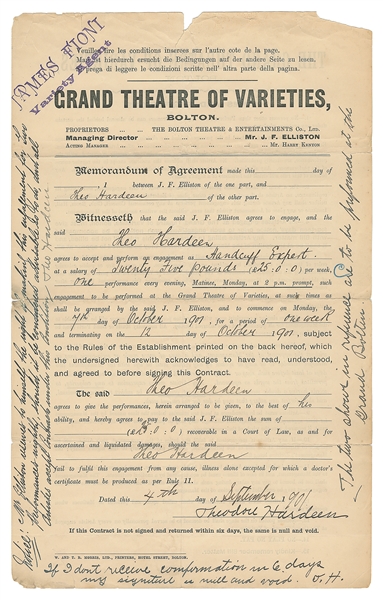 JAMES FIONI
Variety Agent
Veuillez lire les conditions inserees sur l'autre cote de la page.
Man bittet hierdurch ersucht die Bedingungen auf der andere Seite zu lesen.
Si prega di leggere le condizioni scritte nell' altra parte della pagina.
GRAND THEATRE OF VARIETIES,
BOLTON.
PROPRIETORS .. .. THE BOLTON THEATRE & ENTERTAINMENTS CO., LTD.
Managing Director .. .. Mr. J. F. ELLISTON
ACTING MANAGER .. .. MR. HARRY KENYON
Memorandum of Agreement made this day of
1 between J. F. Elliston of the one part, and
Theo Hardeen of the other part.
Witnesseth that the said J. F. Elliston agrees to engage, and the
said Theo Hardeen
agrees to accept and perform an engagement as Handcuff Expert
at a salary of Twenty Five pounds (£25.0.0) per week,
one performance every evening, Matinee, Monday, at 2 p.m. prompt, such
engagement to be performed at the Grand Theatre of Varieties, at such times as
shall be arranged by the said J. F. Elliston, and to commence on Monday, the
7th day of October 1901, for a period of one week
and terminating on the 12 day of October 1901, subject
to the Rules of the Establishment printed on the back hereof, which
the undersigned herewith acknowledges to have read, understood,
and agreed to before signing this Contract.
The said Theo Hardeen
agrees to give the performances, herein arranged to be given, to the best of his
ability, and hereby agrees to pay to the said J. F. Elliston the sum of
(£25.0.0) recoverable in a Court of Law, as and for
ascertained and liquidated damages, should the said
Theo Hardeen
fail to fulfil this engagement from any cause, illness alone excepted for which a doctor's
certificate must be produced as per Rule 11.
Dated this 4th day of September 1901
Theodore Hardeen
If this Contract is not signed and returned within six days, the same is null and void.
If I dont receive confirmation in 6 days
my signature is null and void. T.H.
The two shows in evidence are to be performed at the
Grand Bolton
Theo Hardeen